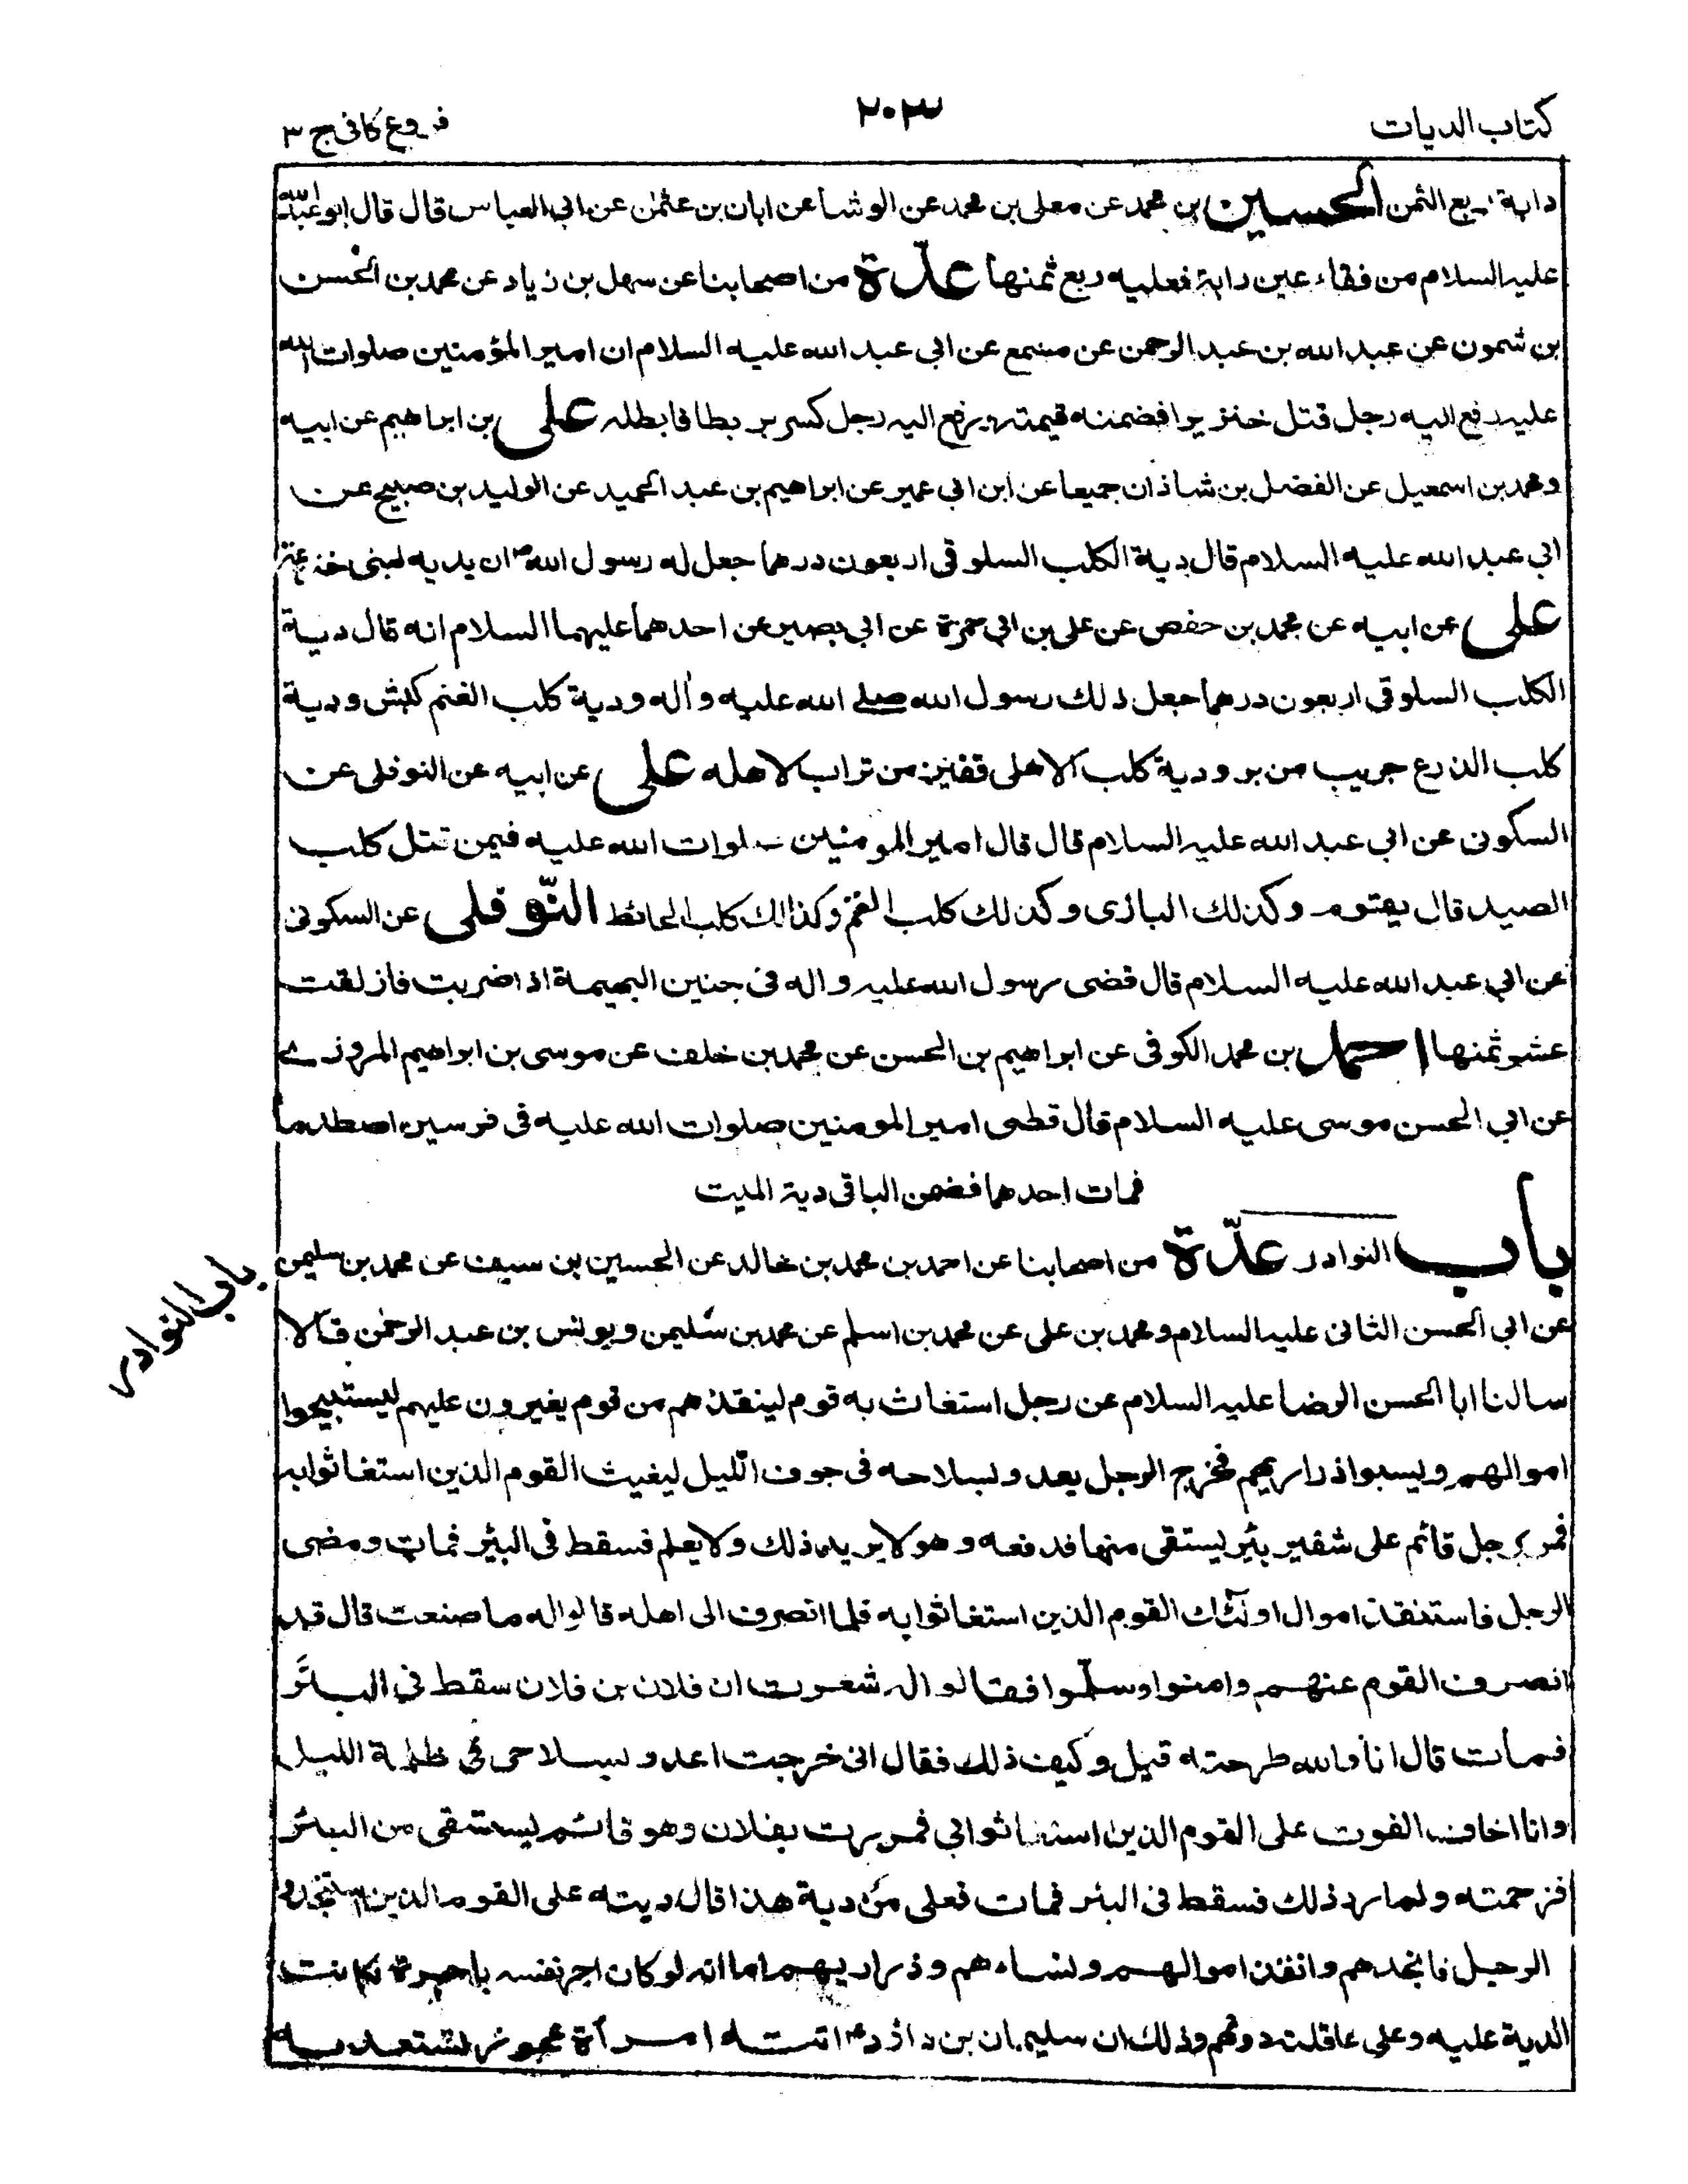 كتاب الديات
٢٠٣
فروع كافى ج ٣
دابة ربع الثمن الحسين بن محمد عن معلى بن محمد عن الوشا عن ابان بن عثمن عن ابى العباس قال قال ابو عبد الله
عليه السلام من فقاء عين دابة فعليه ربع ثمنها عدّة من اصحابنا عن سهل بن زياد عن محمد بن الحسن
بن شمون عن عبد الله بن عبد الرحمن عن مسمع عن ابي عبد الله عليه السلام ان امير المؤمنين صلوات الله
عليه رفع اليه رجل قتل خنزيرا فضمنه قيمته ورفع اليه رجل كسر بربطا فابطله على بن ابراهيم عن ابيه
ومحمد بن اسمعيل عن الفضل بن شاذان جميعا عن ابن ابي عمير عن ابراهيم بن عبد الحميد عن الوليد بن صبيح عن
ابي عبد الله عليه السلام قال دية الكلب السلوقى اربعون درهما جعل له رسول الله ص ان يديه لبنى خذيمة
على عن ابيه عن محمد بن حفص عن على بن ابي حمزة عن ابي بصير عن احدهما عليهما السلام انه قال دية
الكلب السلوقى اربعون درهما جعل ذلك رسول الله صلے الله عليه واله ودية كلب الغنم كبش ودية
كلب الذرع جريب من بر ودية كلب الاهلى قفيز من تراب لاهله على عن ابيه عن النوفلى عن
السكونى عن ابي عبد الله عليه السلام قال قال امير المومنين صلوات الله عليه فيمن قتل كلب
الصيد قال يقوم وكذلك البازى وكذلك كلب الغنم وكذالك كلب الحائط النّوفلى عن السكونى
عن ابي عبد الله عليه السلام قال قضى رسول الله عليه واله فى جنين البهيمة اذا ضربت فازلقت
عشر ثمنها احمد بن محمد الكوفى عن ابراهيم بن الحسن عن محمد بن خلف عن موسى بن ابراهيم المروزے
عن ابي الحسن موسى عليه السلام قال قضى امير المومنين صلوات الله عليه فى فرسين اصطدما
فمات احدهما فضمن الباقى دية الميت
باب النوادر عدّة من اصحابنا عن احمد بن محمد بن خالد عن الحسين بن سيف عن محمد بن سليمن
باب النوادر
عن ابي الحسن الثانى عليه السلام ومحمد بن على عن محمد بن اسلم عن محمد بن سليمن ويونس بن عبد الرحمن قالا
سالنا ابا الحسن الرضا عليه السلام عن رجل استغاث به قوم لينقذهم من قوم يغيرون عليهم ليستبيحوا
اموالهم ويسبوا ذراريهم فخرج الرجل يعدو بسلاحه فى جوف الليل ليغيث القوم الذين استغاثوا به
فمر برجل قائم على شفير بئر يستقى منها فدفعه وهو لا يريد ذلك ولا يعلم فسقط فى البئر فمات ومضى
الرجل فاستنقذ اموال اولئك القوم الذين استغاثوا به فلما انصرف الى اهله قالوا له ما صنعت قال قد
انصرف القوم عنهم وامنوا وسلّموا فقالوا له شعرت ان فلان بن فلان سقط في البئر
فمات قال انا والله طرحته قيل وكيف ذلك فقال انى خرجت اعدو بسلاحى فى ظلمة الليل
وانا اخاف الفوت على القوم الذين استغاثوا بى فمررت بفلان وهو قائم يستقى من البئر
فزحمته ولم ارد ذلك فسقط فى البئر فمات فعلى من دية هذا قال ديته على القوم الذين استنجدوا
الرجل فانجدهم وانقذ اموالهم ونساءهم وذراريهم اما انه لو كان اجر نفسه باجرة لكانت
الدية عليه وعلى عاقلته دونهم وذلك ان سليمان بن داؤد ع اتته امرأة عجوز تستعديه